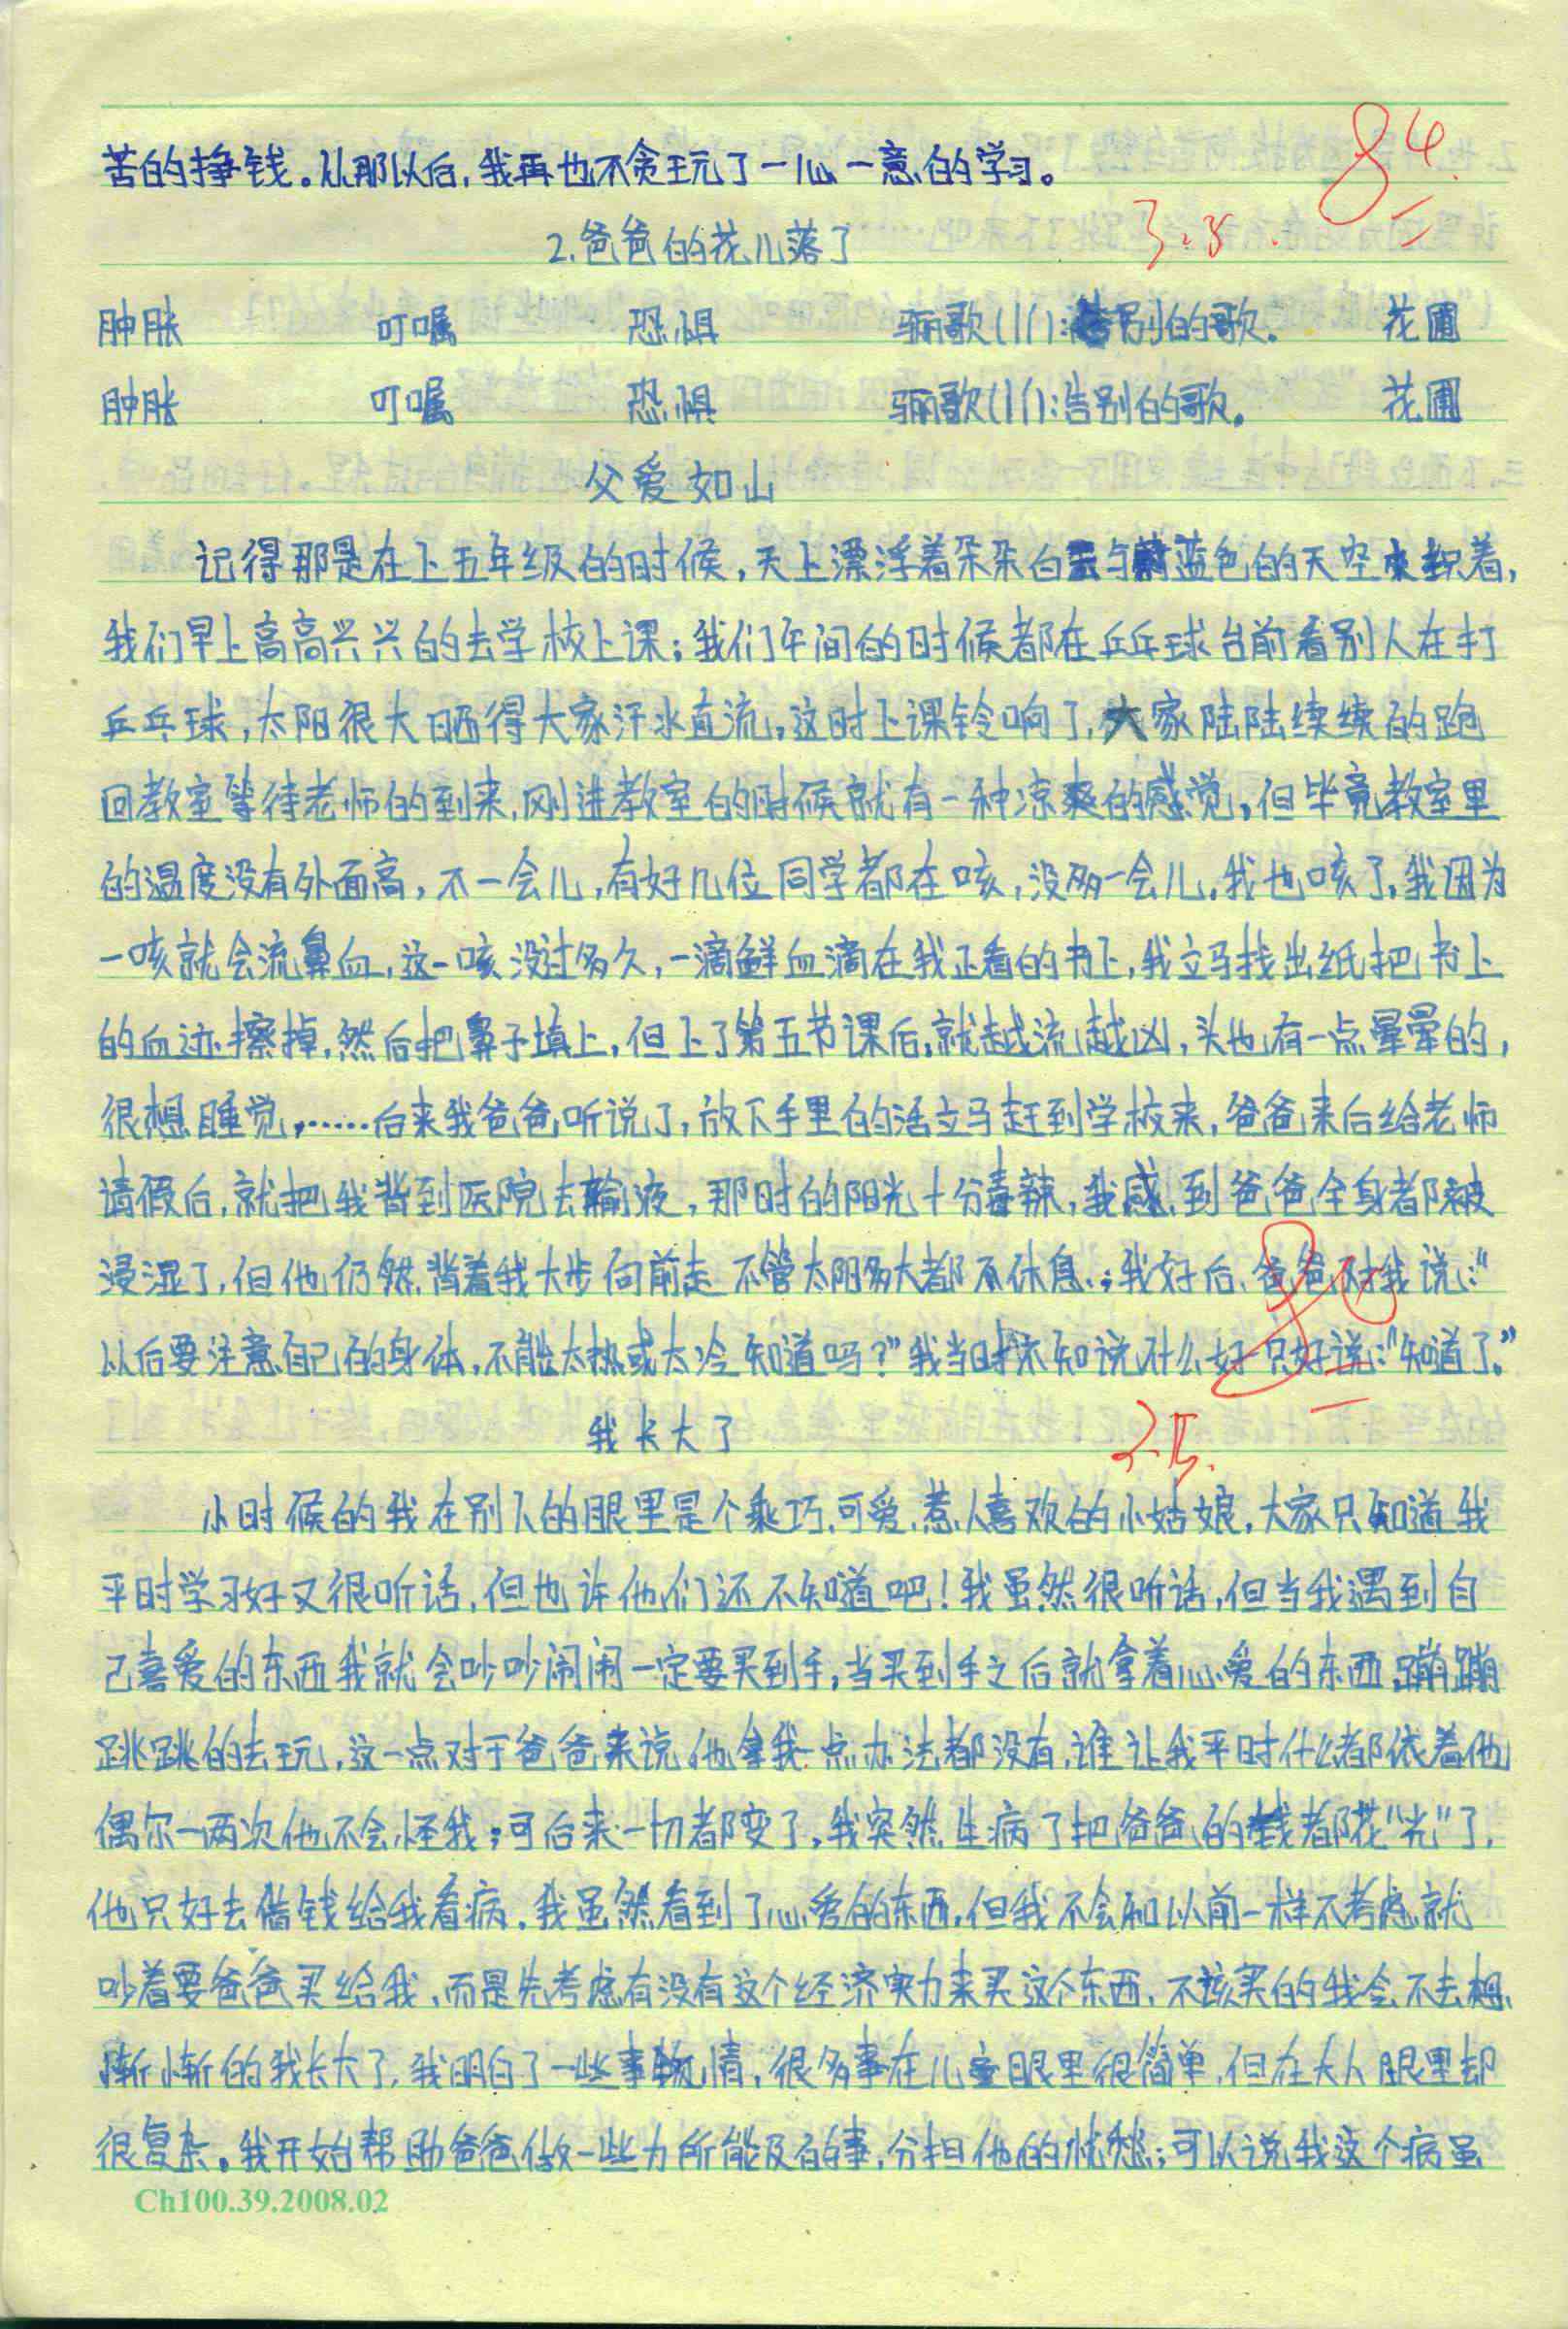 苦的挣钱。从那以后，我再也不贪玩了一心一意的学习。
84
3.5.
2.爸爸的花儿落了
肿胀 叮嘱 恐惧 骊歌(lí):告别的歌。 花圃
肿胀 叮嘱 恐惧 骊歌(lí):告别的歌。 花圃
父爱如山
记得那是在上五年级的时候，天上漂浮着朵朵白云与蓝色的天空交织着，
我们早上高高兴兴的去学校上课；我们午间的时候都在乒乓球台前看别人在打
乒乓球，太阳很大晒得大家汗水直流，这时上课铃响了，大家陆陆续续的跑
回教室等待老师的到来，刚进教室的时候就有一种凉爽的感觉，但毕竟教室里
的温度没有外面高，不一会儿，有好几位同学都在咳，没多一会儿，我也咳了，我因为
一咳就会流鼻血，这一咳没过多久，一滴鲜血滴在我正看的书上，我立马找出纸把书上
的血迹擦掉，然后把鼻子填上，但上了第五节课后，就越流越凶，头也有一点晕晕的，
很想睡觉，……后来我爸爸听说了，放下手里的活立马赶到学校来，爸爸来后给老师
请假后，就把我背到医院去输液，那时的阳光十分毒辣，我感到爸爸全身都被
浸湿了，但他仍然背着我大步向前走不管太阳多大都不休息；我好后，爸爸对我说：“
以后要注意自己的身体，不能太热或太冷知道吗？”我当时不知说什么好只好说：“知道了。”
我长大了
2.15.
小时候的我在别人的眼里是个乖巧、可爱、惹人喜欢的小姑娘，大家只知道我
平时学习好又很听话，但也许他们还不知道吧！我虽然很听话，但当我遇到自
己喜爱的东西我就会吵吵闹闹一定要买到手，当买到手之后就拿着心爱的东西，蹦蹦
跳跳的去玩，这一点对于爸爸来说他拿我一点办法都没有，谁让我平时什么都依着他
偶尔一两次他不会怪我；可后来一切都变了，我突然生病了把爸爸的钱都花“光”了，
他只好去借钱给我看病，我虽然看到了心爱的东西，但我不会和以前一样不考虑就
吵着要爸爸买给我，而是先考虑有没有这个经济实力来买这个东西，不该买的我会不去想，
渐渐的我长大了，我明白了一些事情，很多事在儿童眼里很简单，但在大人眼里却
很复杂。我开始帮助爸爸做一些力所能及的事，分担他的忧愁；可以说我这个病虽
Ch100.39.2008.02